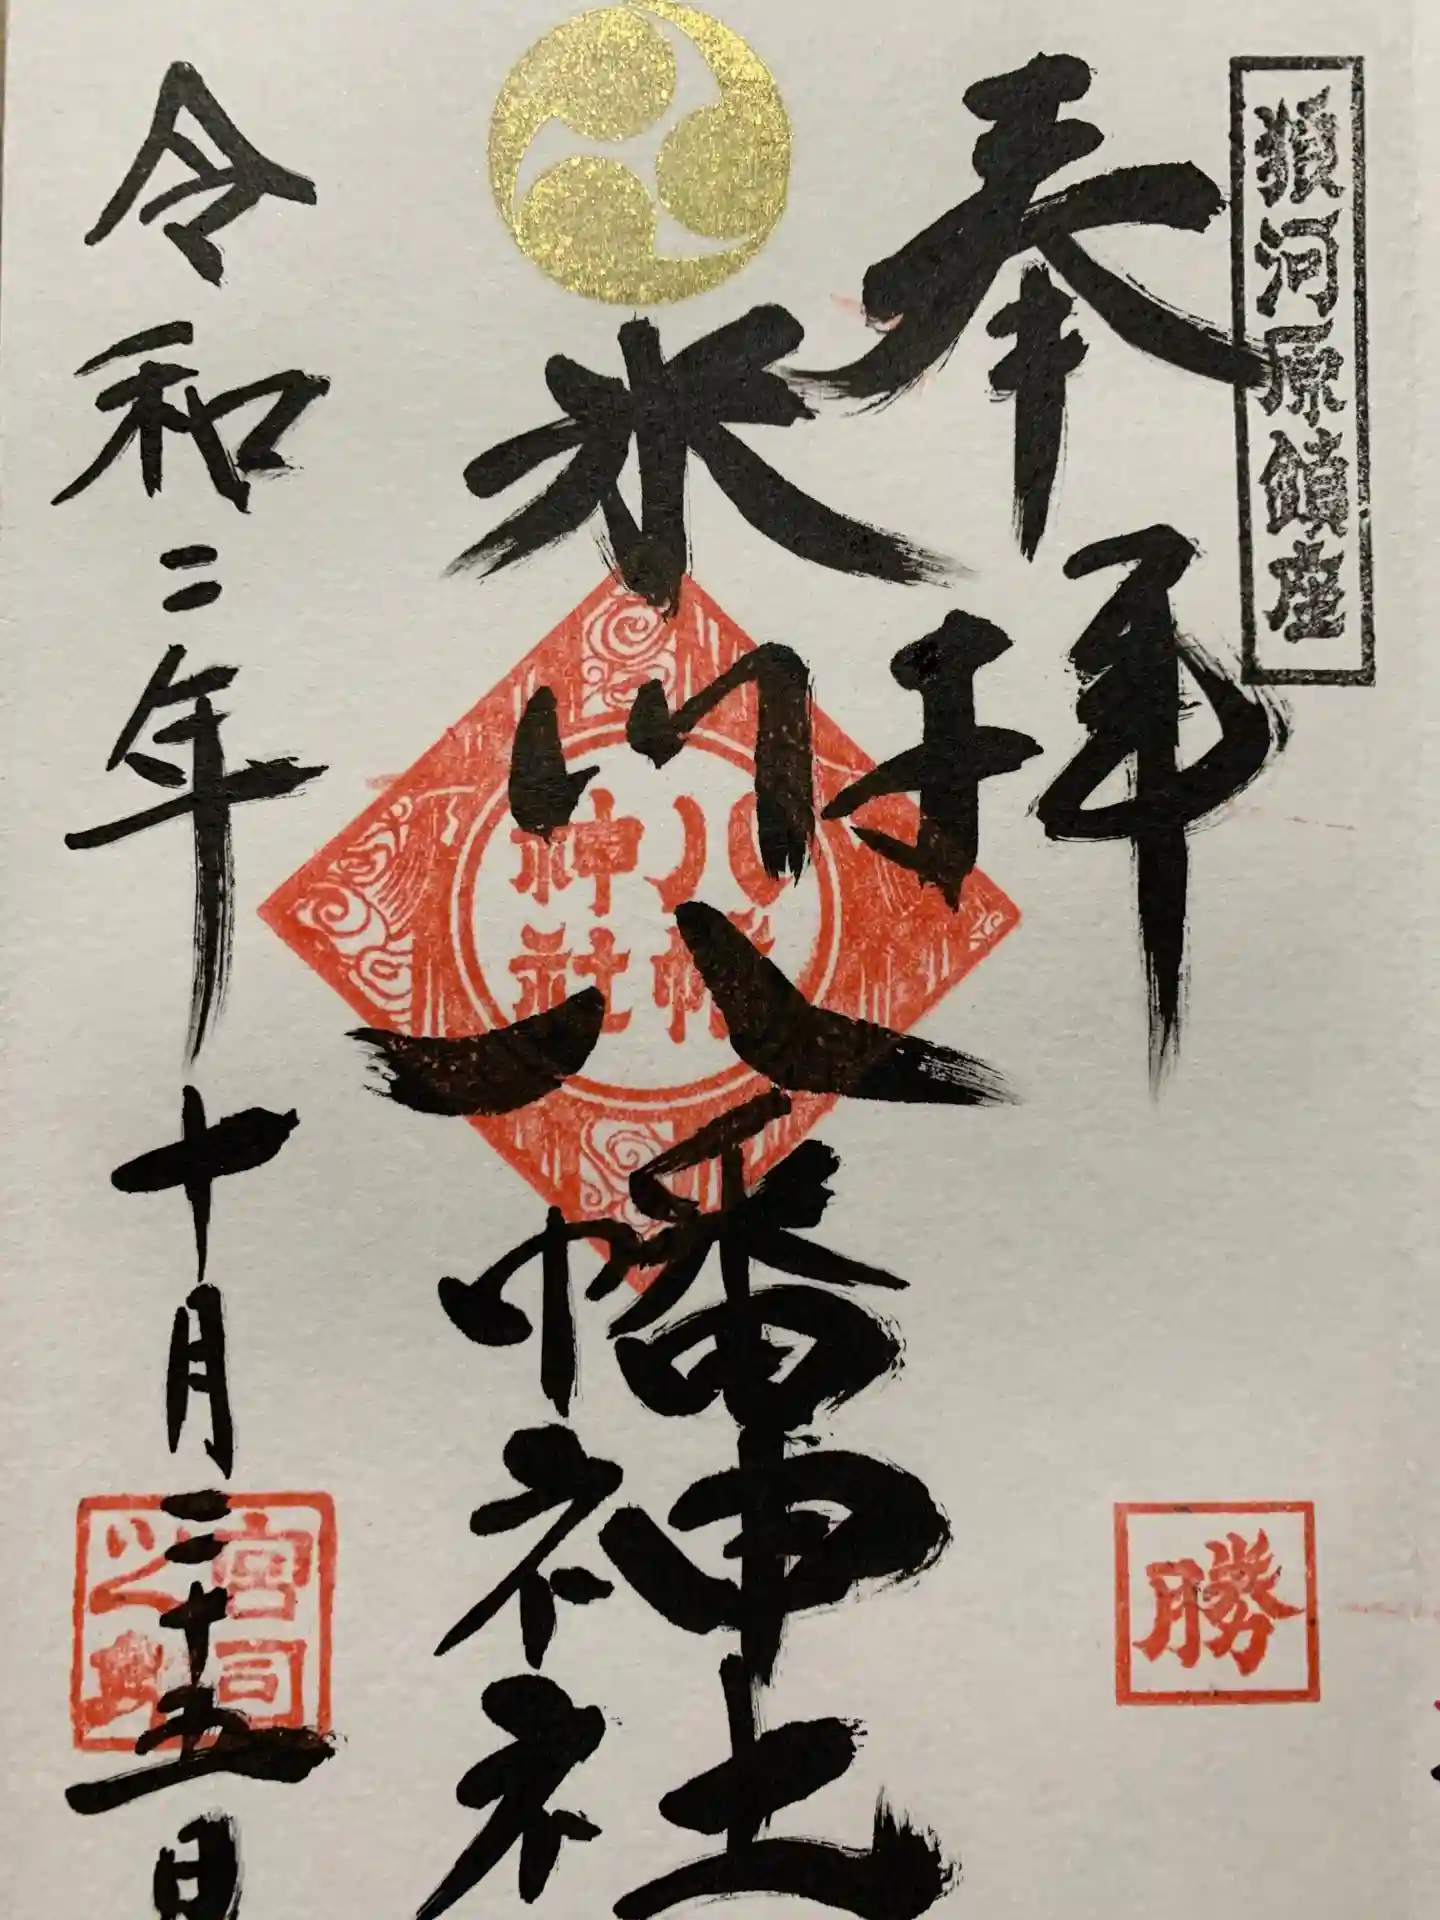 猿河原鎮座
奉拝
勝
氷川八幡神社
八幡
神社
令和二年十月二十五日
宮司
之印